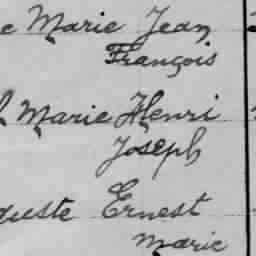 e Marie Jean
François
l Marie Henri
Joseph
guste Ernest
Marie